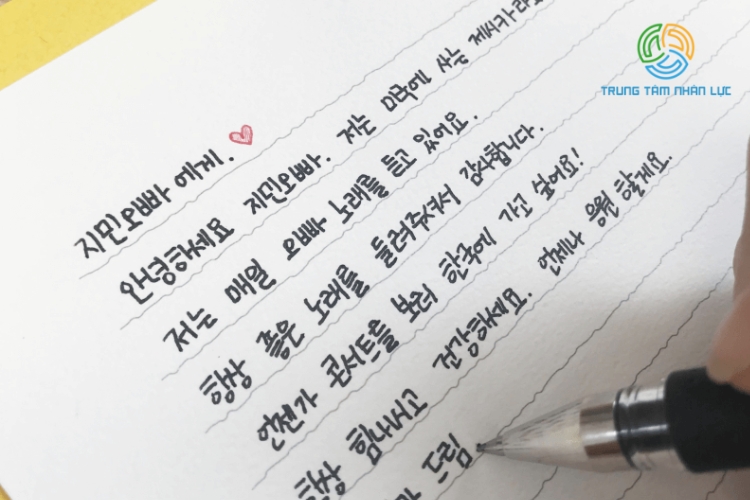 TRUNG TÂM NHÂN LỰC
지민오빠에게.
안녕하세요 지민오빠. 저는 미국에 사는 제시카라고
저는 매일 오빠 노래를 듣고 있어요.
항상 좋은 노래를 들려주셔서 감사합니다.
언젠가 콘서트를 보러 한국에 가고 싶어요!
항상 힘내시고 건강하세요. 언제나 응원 할게요.
드림